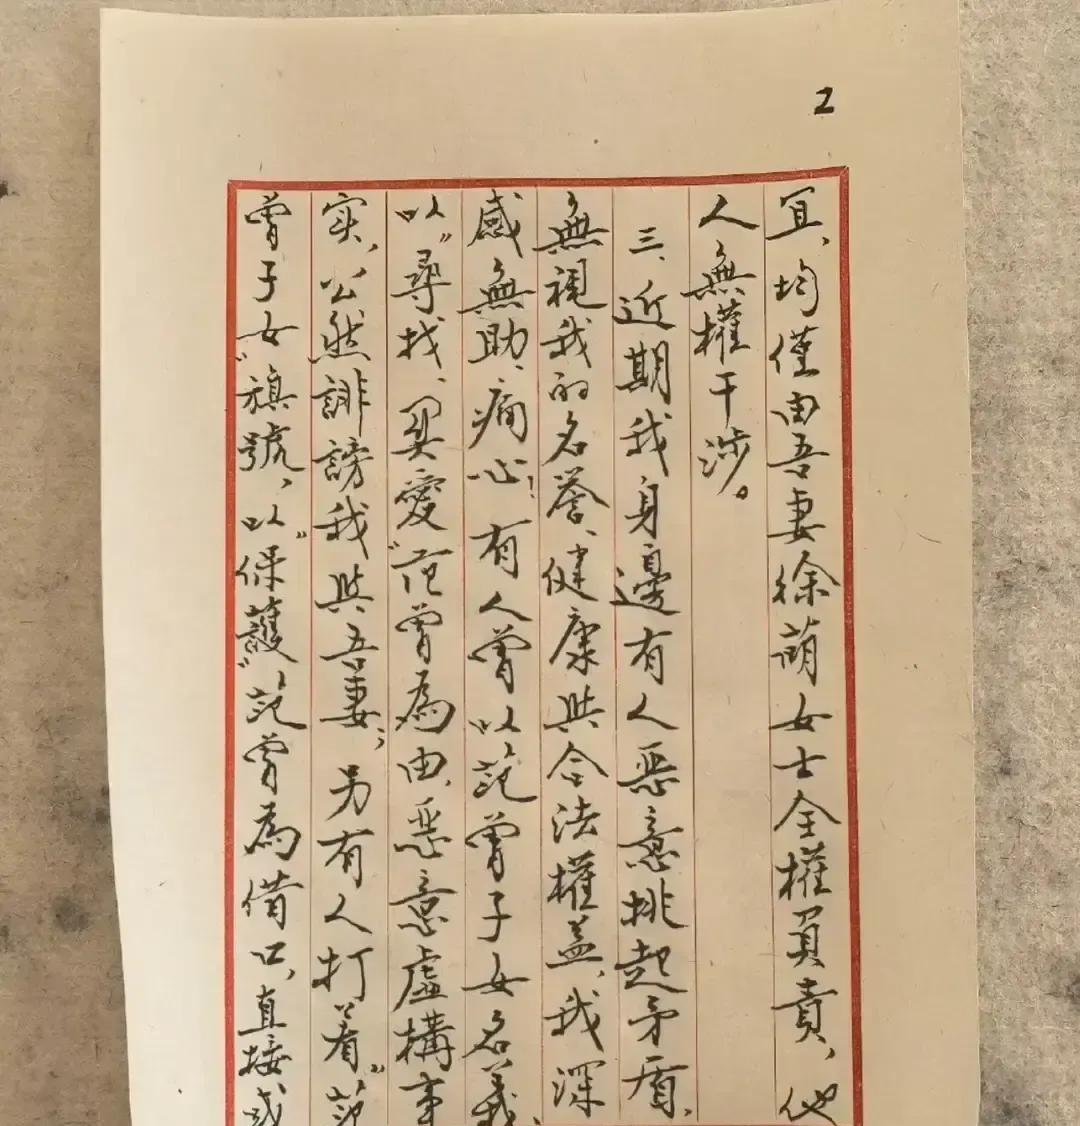 2
宜、均僅由吾妻徐萌女士全權負責，他
人無權干涉。
三、近期我身邊有人惡意挑起矛盾，
無視我的名譽、健康與合法權益，我深
感無助、痛心！有人曾以范曾子女名義，
以“尋找、關愛”范曾為由，惡意虛構事
实，公然誹謗我與吾妻；另有人打着“范
曾子女”旗號，以“保護”范曾為借口，直接或